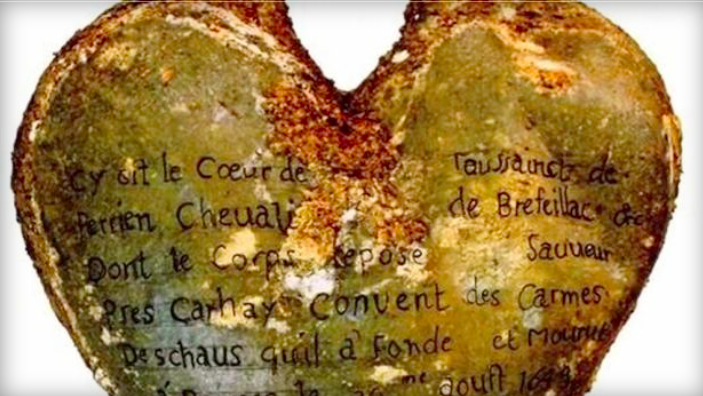 cy git le Coeur de Toussainct de
Perrien Cheuali de Brefeillac &c
Dont le Corps repose Sauueur
Pres Carhay Convent des Carmes
Deschaus quil a Fondé et Mourut
à le me aoust